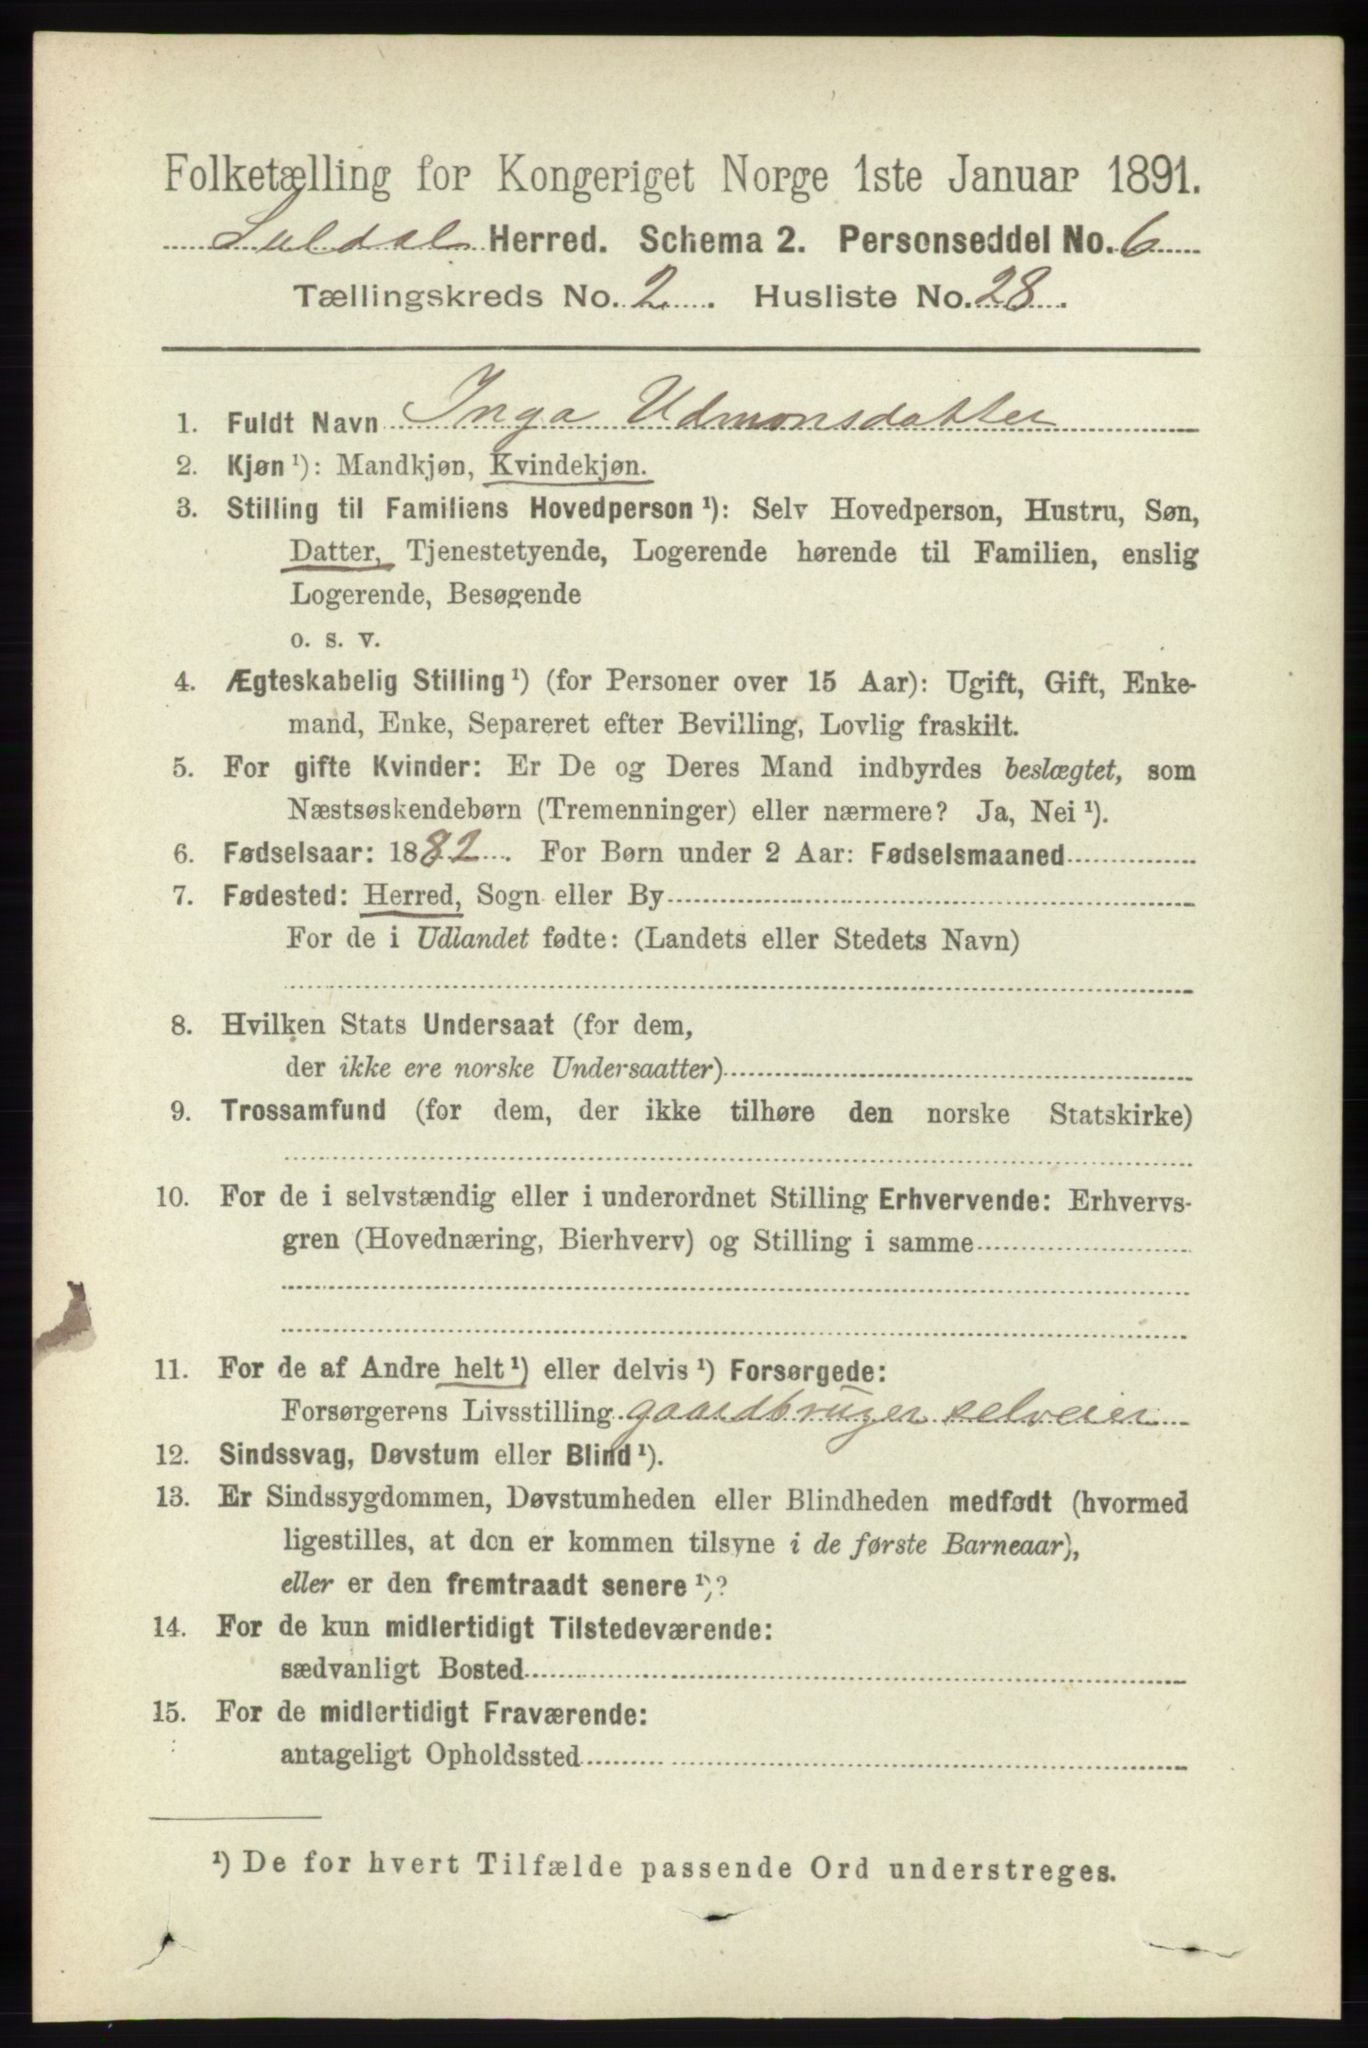 Folketælling for Kongeriget Norge 1ste Januar 1891.
Suldal Herred. Schema 2. Personseddel No. 6
Tællingskreds No. 2. Husliste No. 28.
1. Fuldt Navn Inga Udmonsdatter
2. Kjøn ¹): Mandkjøn, Kvindekjøn.
3. Stilling til Familiens Hovedperson ¹): Selv Hovedperson, Hustru, Søn,
Datter, Tjenestetyende, Logerende hørende til Familien, enslig
Logerende, Besøgende
o. s. v.
4. Ægteskabelig Stilling ¹) (for Personer over 15 Aar): Ugift, Gift, Enke-
mand, Enke, Separeret efter Bevilling, Lovlig fraskilt.
5. For gifte Kvinder: Er De og Deres Mand indbyrdes beslægtet, som
Næstsøskendebørn (Tremenninger) eller nærmere? Ja, Nei ¹).
6. Fødselsaar: 1882. For Børn under 2 Aar: Fødselsmaaned
7. Fødested: Herred, Sogn eller By
For de i Udlandet fødte: (Landets eller Stedets Navn)
8. Hvilken Stats Undersaat (for dem,
der ikke ere norske Undersaatter)
9. Trossamfund (for dem, der ikke tilhøre den norske Statskirke)
10. For de i selvstændig eller i underordnet Stilling Erhvervende: Erhvervs-
gren (Hovednæring, Bierhverv) og Stilling i samme
11. For de af Andre helt ¹) eller delvis ¹) Forsørgede:
Forsørgerens Livsstilling gaardbruger selveier
12. Sindssvag, Døvstum eller Blind ¹).
13. Er Sindssygdommen, Døvstumheden eller Blindheden medfødt (hvormed
ligestilles, at den er kommen tilsyne i de første Barneaar),
eller er den fremtraadt senere ¹)?
14. For de kun midlertidigt Tilstedeværende:
sædvanligt Bosted
15. For de midlertidigt Fraværende:
antageligt Opholdssted
¹) De for hvert Tilfælde passende Ord understreges.